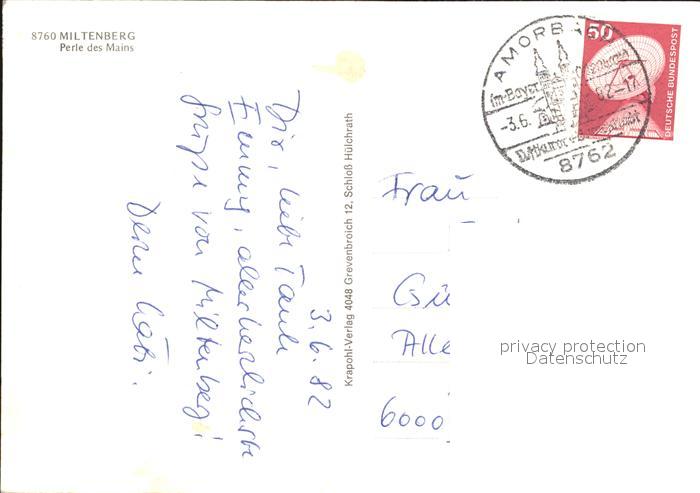 8760 MILTENBERG
Perle des Mains
AMORBACH
im Bayer. Odenwald
-3.6. 82-17
Luftkurort
8762
50
DEUTSCHE BUNDESPOST
3.6.82
Dir, liebe Tante
Emmy, allerherzlichste
Grüße von Miltenberg!
Deine Käti.
Krapohl-Verlag 4048 Grevenbroich 12, Schloß Hülchrath
Frau
Gü
Alle
6000
privacy protection
Datenschutz